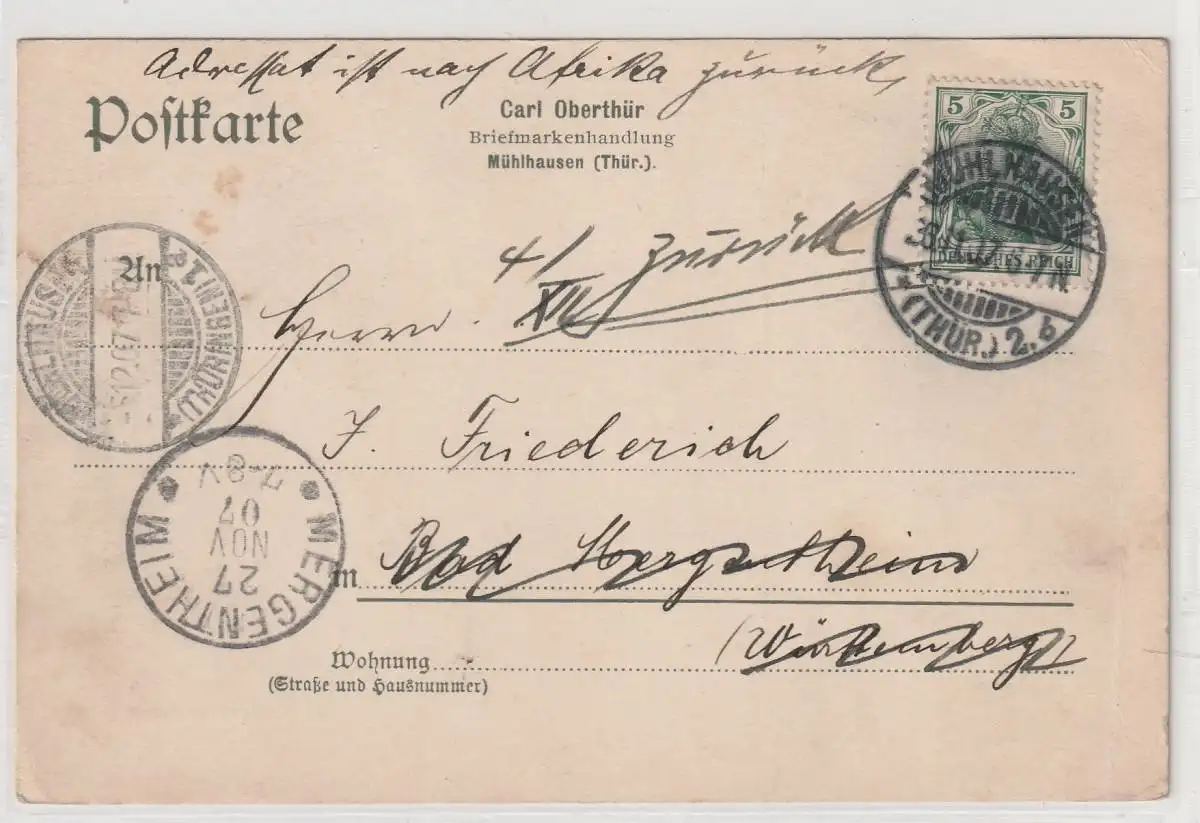 Adressat ist nach Afrika zurück,
Postkarte
Carl Oberthür
Briefmarkenhandlung
Mühlhausen (Thür.).
5 5
DEUTSCHES REICH
MÜHLHAUSEN
(THÜR.) 2. b
4/XII zurück
An
MÜHLHAUSEN
(THÜRINGEN) 1
Herrn
J. Friederich
MERGENTHEIM
27
NOV
07
7-8V
in Bad Mergentheim
(Württemberg)
Wohnung
(Straße und Hausnummer)